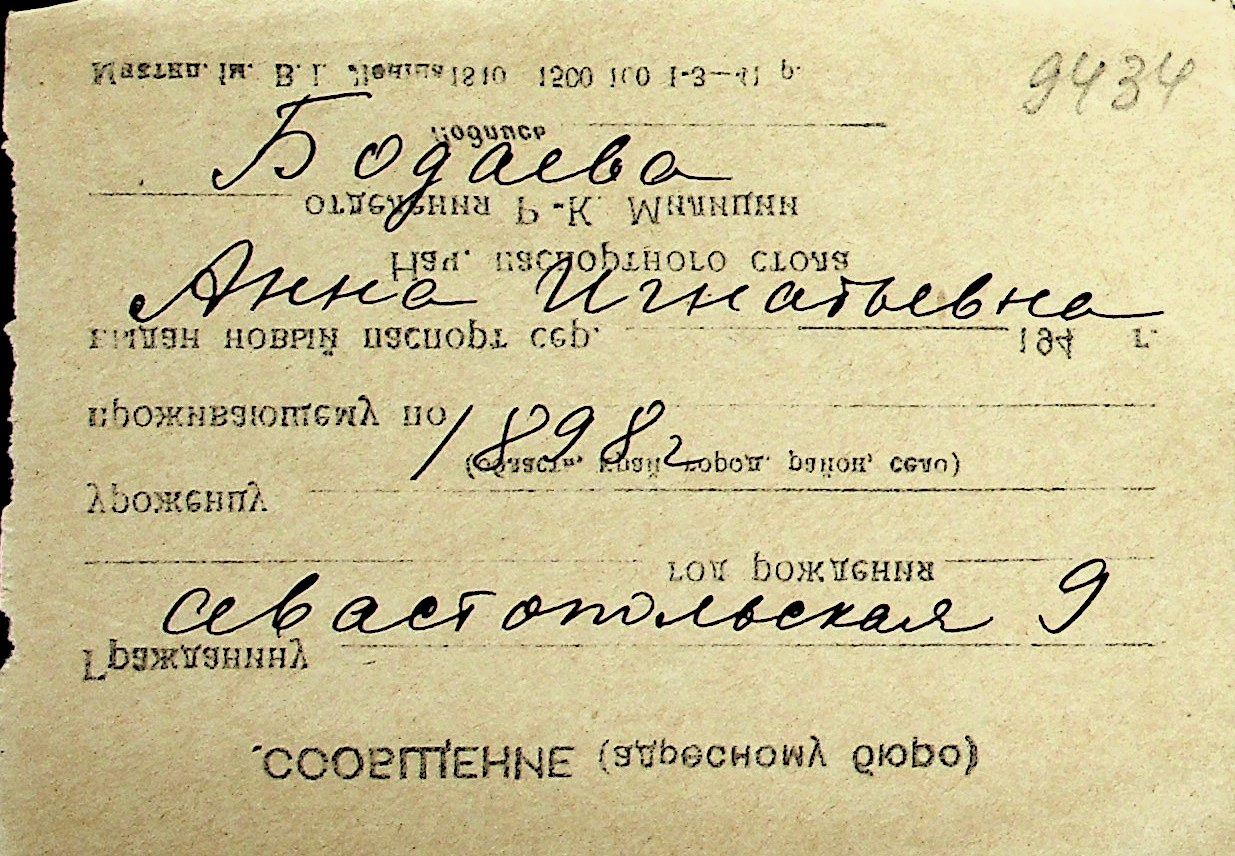 9434
Мистец. ім. В. І. Леніна 1810 1500 100 1-3-41 р.
подпись
Бодаева
отделения Р.-К. Милиции
Нач. паспортного стола
Анна Игнатьевна
выдан новый паспорт сер. 194 г.
проживающему по
1898 г
(область, край, город, район, село)
уроженцу
год рождения
Севастопольская 9
Гражданину
СООБЩЕНИЕ (адресному бюро)